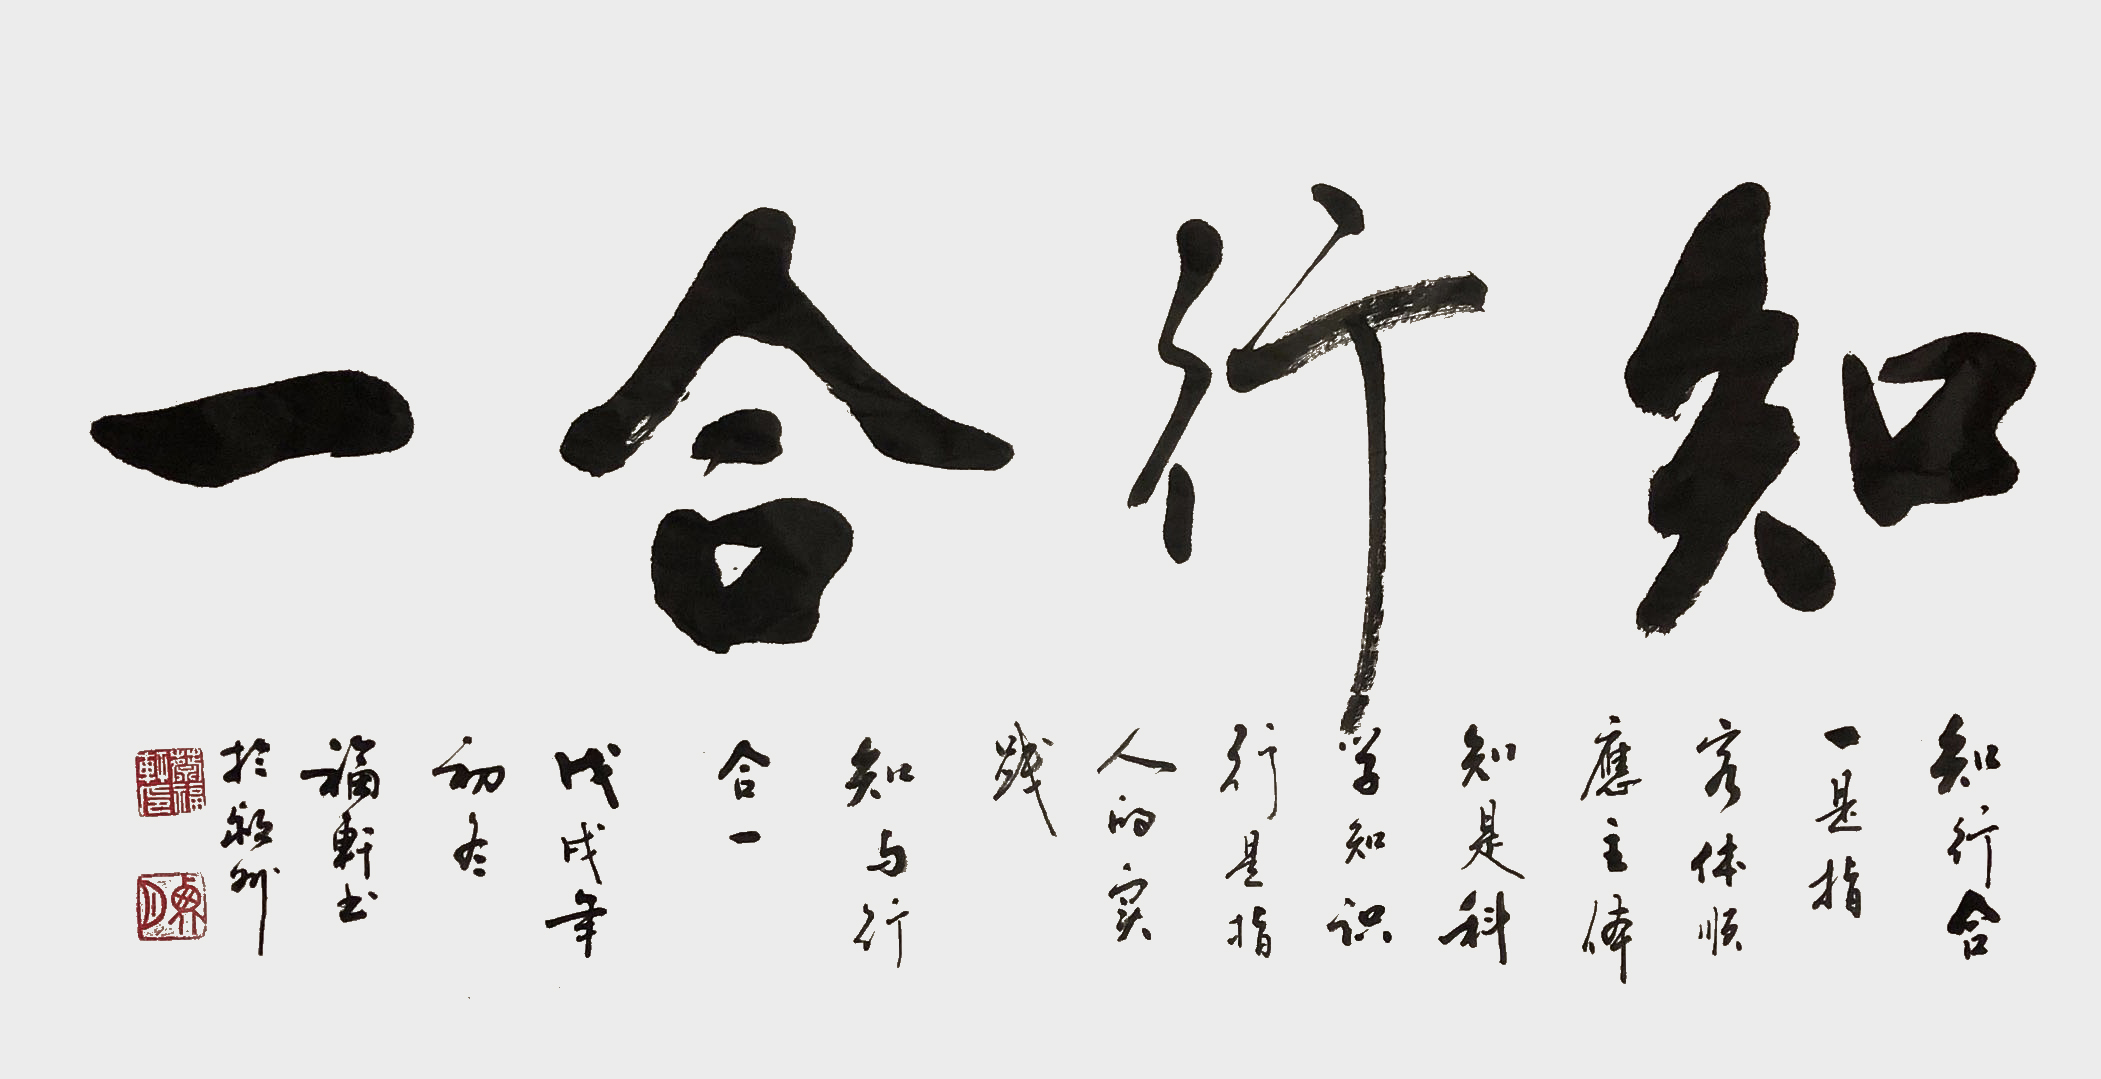 知行合一
知行合
一是指
客体顺
應主体
知是科
学知识
行是指
人的实
践
知与行
合一
戊戌年
初冬
福軒书
於州